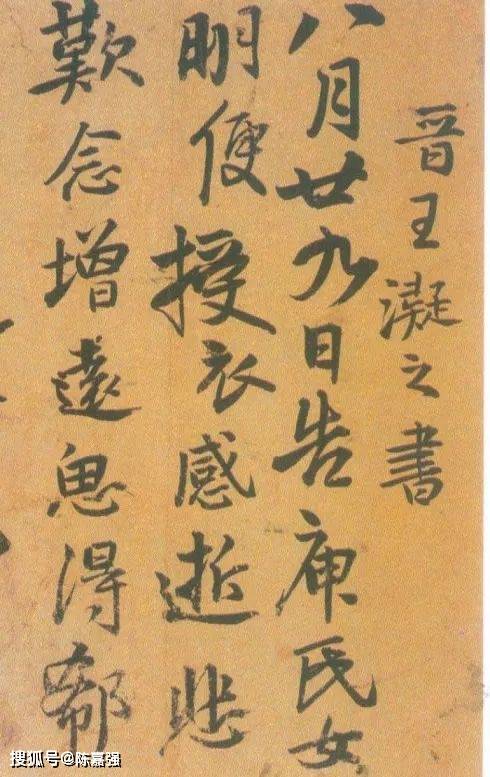 晉王凝之書
八月廿九日告庾氏女
明便授衣感逝悲
歎念增遠思得郗
搜狐号@陈嘉强